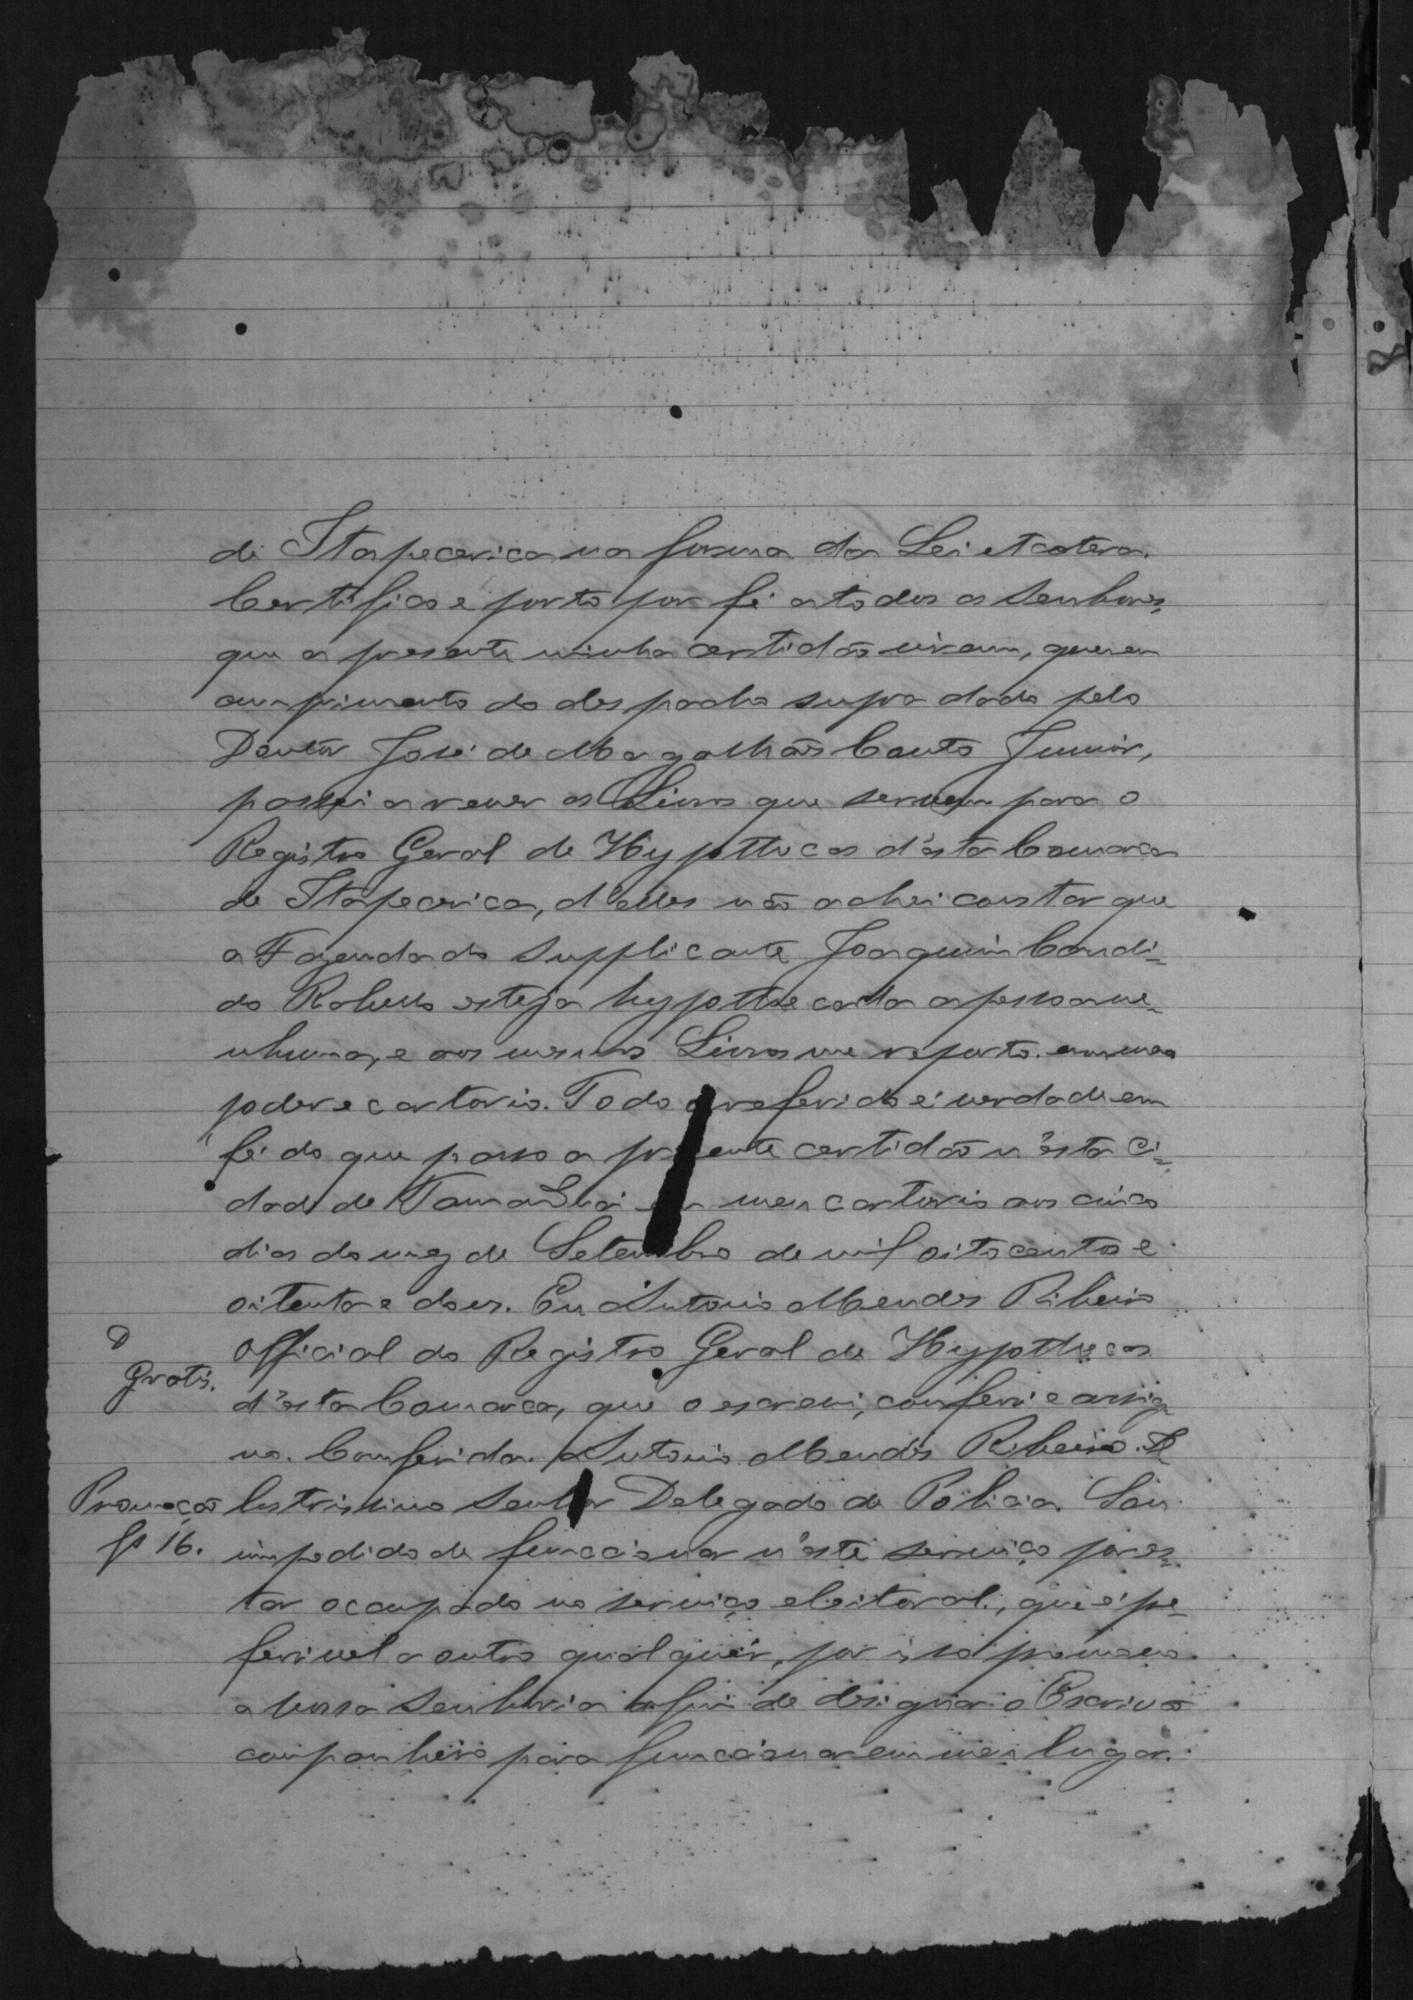 de Itapecerica na forma da Lei etcetera.
Certifico e porto por fé a todos os Senhores,
que a presente minha certidão virem, que em
cumprimento do despacho supra dado pelo
Doutor José de Magalhães Couto Junior,
passei a rever os Livros que servem para o
Registro Geral de Hypothecas d'esta Comarca
de Itapecerica, d'elles não achei constar que
a Fazenda do Supplicante Joaquim Candi=
do Rabello esteja hypothecada a pessoa ne=
nhuma, e aos mesmos Livros me reporto em meu
poder e cartorio. Todo o referido é verdade em
fé do que passo a presente certidão n'esta Ci=
dade de Tamanduá em meu cartorio aos cinco
dias do mez de Setembro de mil oito centos e
oitenta e does. Eu Antonio Mendes Ribeiro
Official do Registro Geral de Hypothecas
Gratis.
d'esta Comarca, que o escrevi, conferi e assig
no. Conferida. Antonio Mendes Ribeiro. Il
Promoção
lustrissimo Senhor Delegado de Policia. Sou
fs 16.
impedido de funccionar n'este serviço por es=
tar occupado no serviço eleitoral, que é pre=
ferivel a outro qualquér, por isso promovo
a Vossa Senhoria a fim de designar o Escrivão
companheiro para funccionar em meu lugar.
8